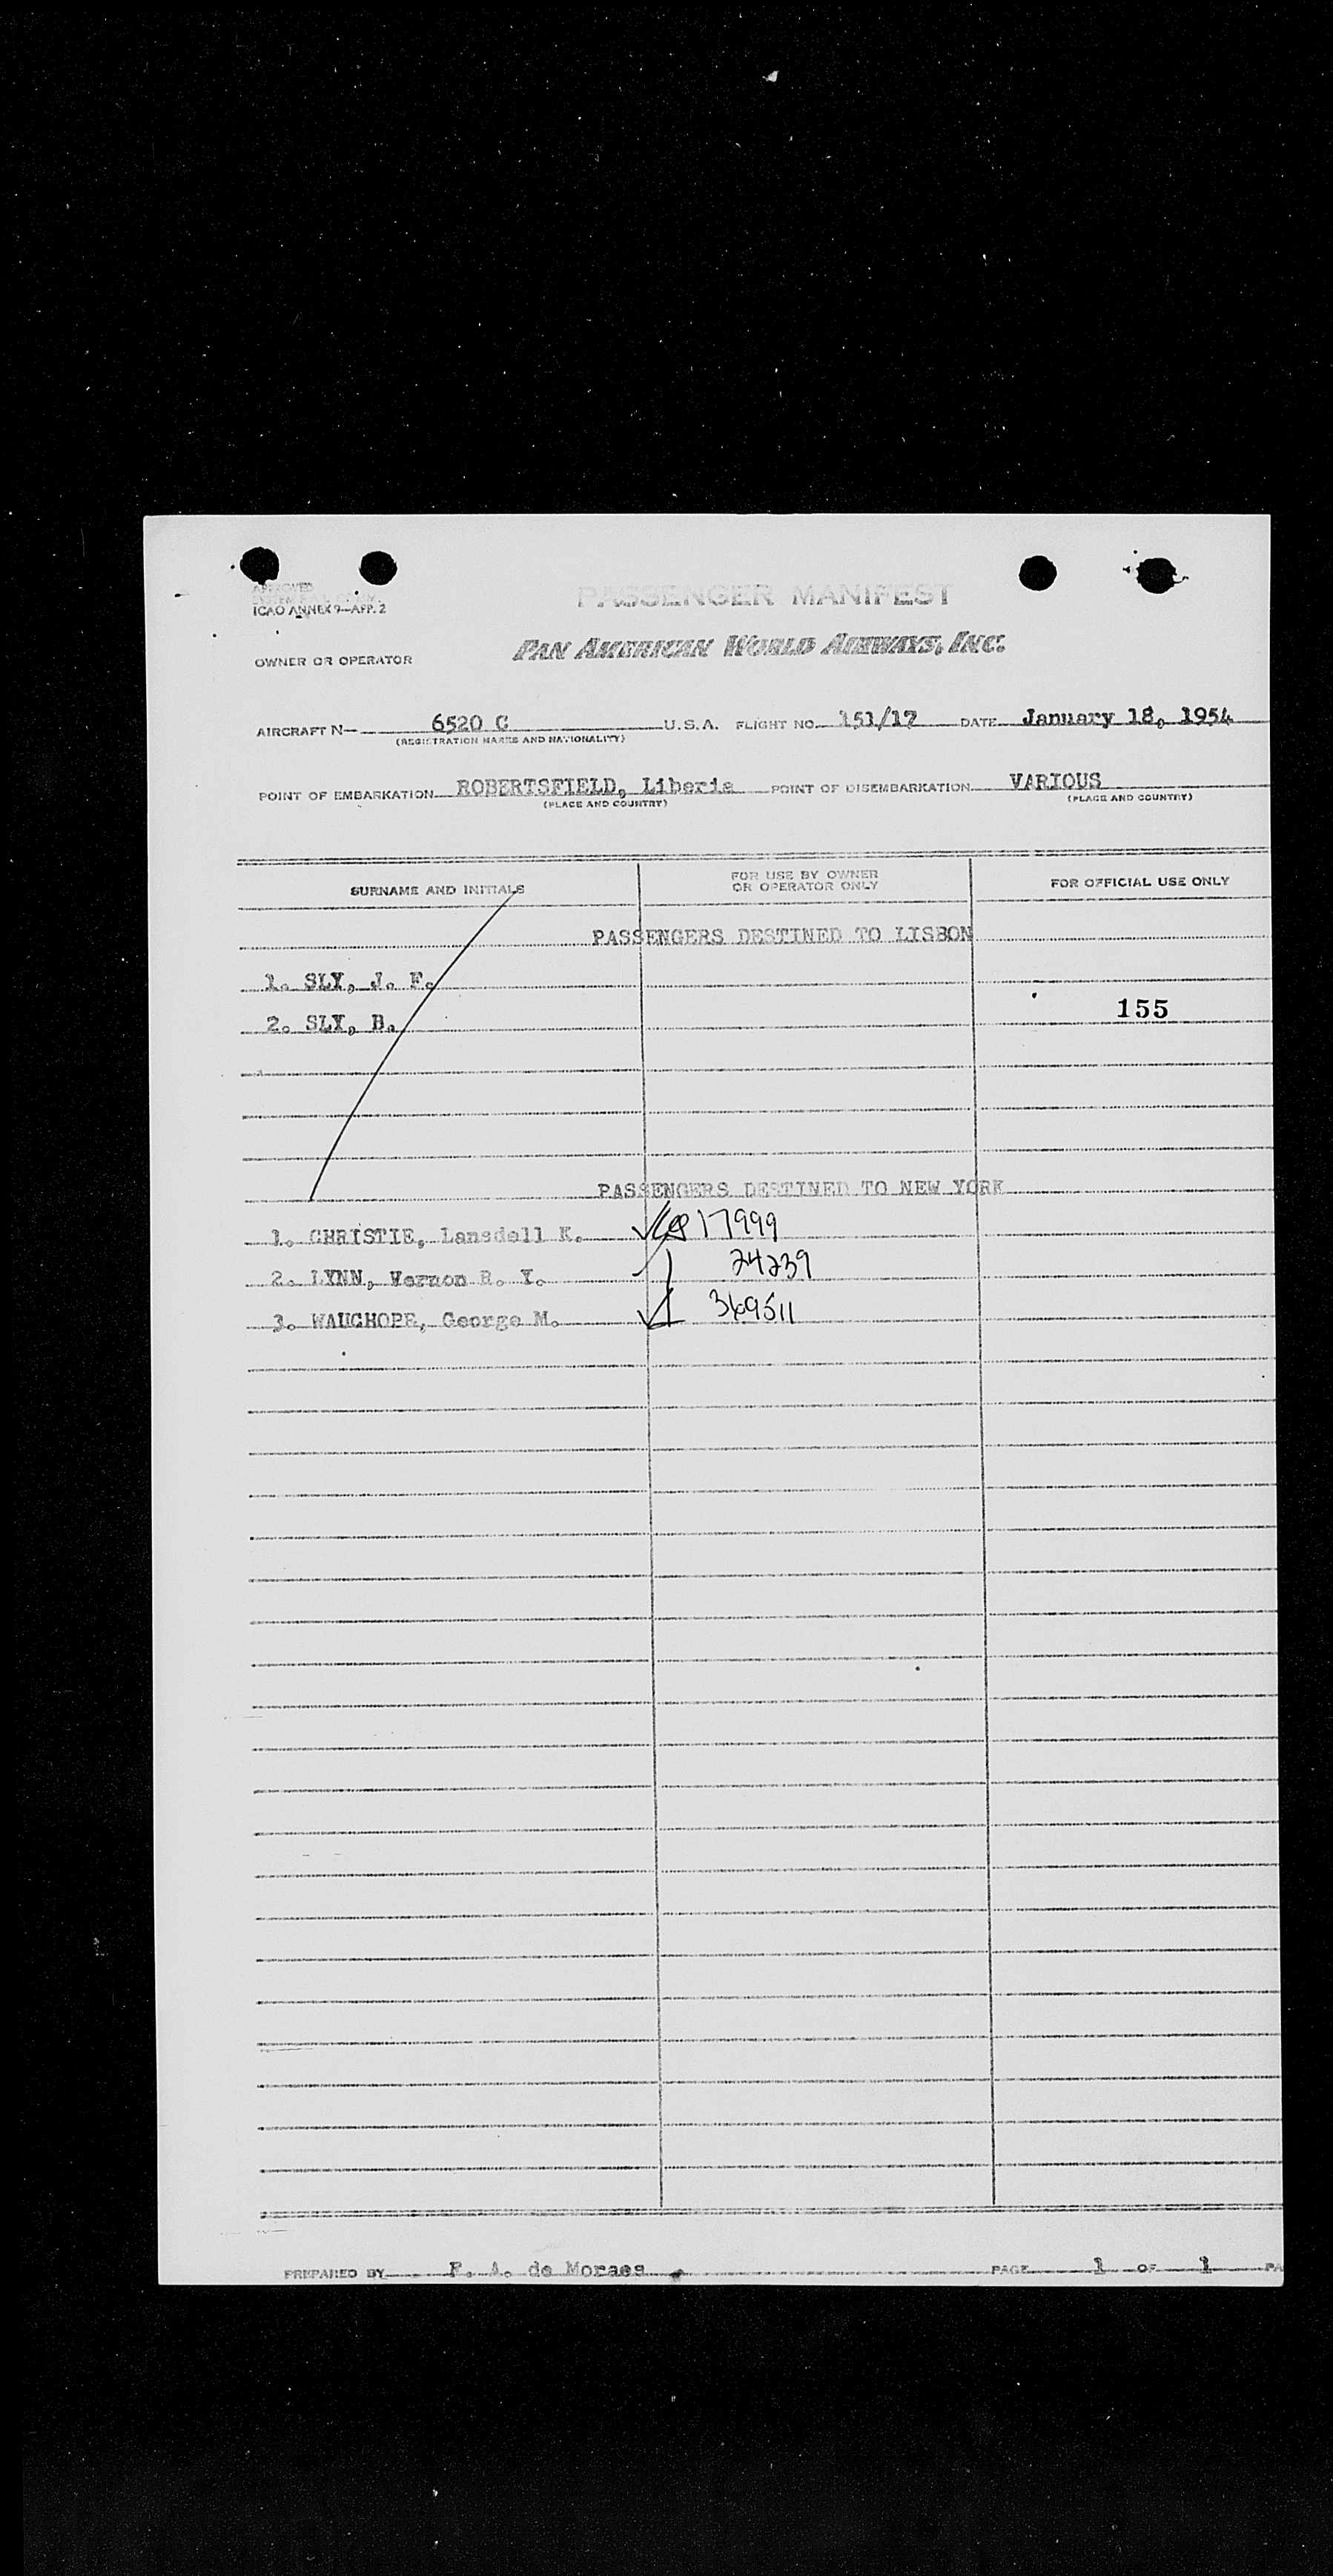 APPROVED
ICAO ANNEX 9—APP. 2
PASSENGER MANIFEST
OWNER OR OPERATOR
PAN AMERICAN WORLD AIRWAYS, INC.
AIRCRAFT N— 6520 C U.S.A. FLIGHT NO. 151/17 DATE January 18, 1954
(REGISTRATION MARKS AND NATIONALITY)
POINT OF EMBARKATION ROBERTSFIELD, Liberia POINT OF DISEMBARKATION VARIOUS
(PLACE AND COUNTRY) (PLACE AND COUNTRY)
SURNAME AND INITIALS FOR USE BY OWNER OR OPERATOR ONLY FOR OFFICIAL USE ONLY
PASSENGERS DESTINED TO LISBON
1. SLY, J. F.
2. SLY, B. 155
PASSENGERS DESTINED TO NEW YORK
1. CHRISTIE, Lansdell K. 17999
2. LYNN, Vernon R. Y. 24239
3. WAUCHOPE, George M. 369511
PREPARED BY F. A. de Moraes PAGE 1 OF 1 PA